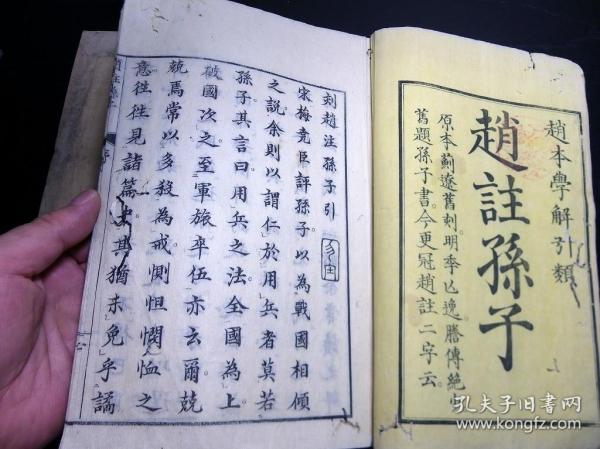 趙本學解引類
趙註孫子
原本薊遼舊刻明季已逸謄傳絶
舊題孫子書今更冠趙註二字云
刻趙注孫子引
宋梅堯臣評孫子以為戰國相傾
之說余則以謂仁於用兵者莫若
孫子其言曰用兵之法全國為上
破國次之至軍旅卒伍亦云爾兢
兢焉常以多殺為戒惻怛憫恤之
意往往見諸篇史其猶未免乎譎
孔夫子旧书网
www.kongfz.com